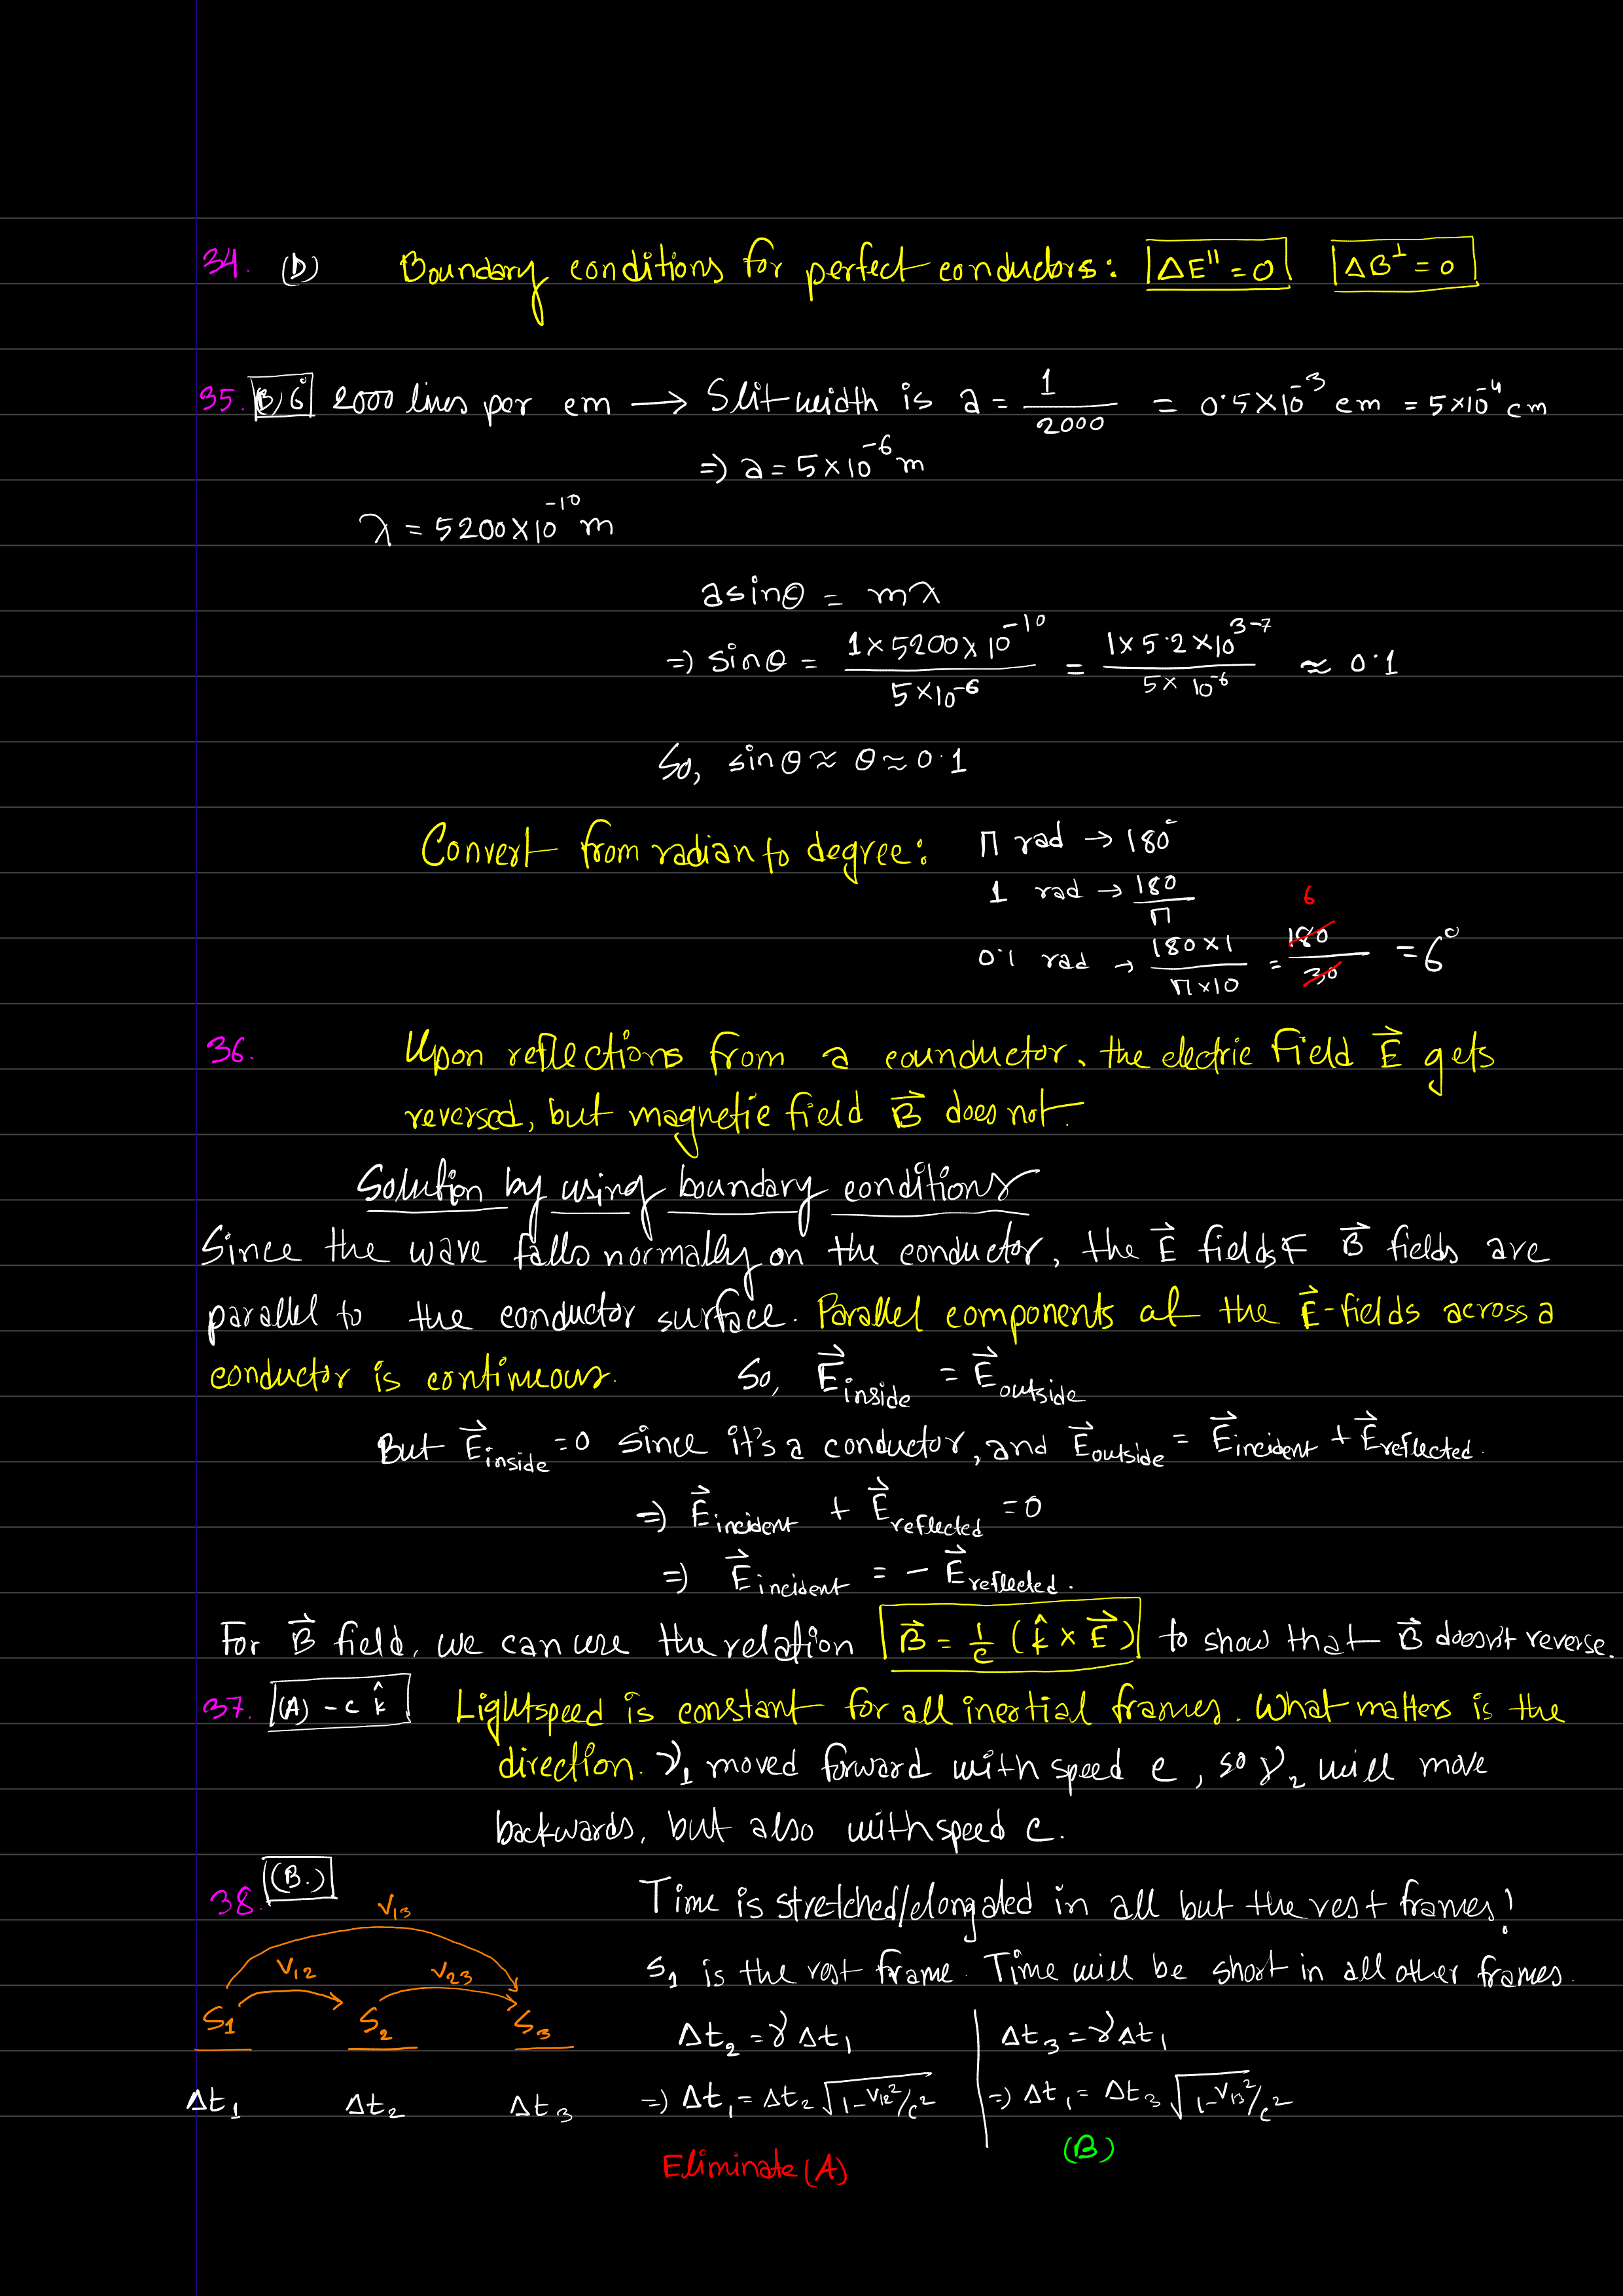 34. (D) Boundary conditions for perfect conductors: ΔE^{||} = 0 ΔB^⊥ = 0
35. (B) 6° 2000 lines per cm → Slit width is a = 1/2000 = 0.5×10^{-3} cm = 5×10^{-4} cm
=) a = 5×10^{-6} m
λ = 5200×10^{-10} m
a sinθ = mλ
=) sinθ = (1×5200×10^{-10})/(5×10^{-6}) = (1×5.2×10^{3-7})/(5×10^{-6}) ≈ 0.1
So, sinθ ≈ θ ≈ 0.1
Convert from radian to degree: Π rad → 180°
1 rad → 180/Π
6
0.1 rad → (180×1)/(Π×10) = 180/30 = 6°
36. Upon reflections from a counductor, the electric field E⃗ gets
reversed, but magnetic field B⃗ does not.
Solution by using boundary conditions
Since the wave falls normally on the conductor, the E⃗ fields & B⃗ fields are
parallel to the conductor surface. Parallel components of the E⃗-fields across a
conductor is continuous. So, E⃗_inside = E⃗_outside
But E⃗_inside = 0 since it's a conductor, and E⃗_outside = E⃗_incident + E⃗_reflected.
=) E⃗_incident + E⃗_reflected = 0
=) E⃗_incident = - E⃗_reflected.
For B⃗ field, we can use the relation B⃗ = 1/c (k̂ × E⃗) to show that B⃗ doesn't reverse.
37. (A) -c k̂ Lightspeed is constant for all inertial frames. What matters is the
direction. γ_1 moved forward with speed c, so γ_2 will move
backwards, but also with speed c.
38. (B.) Time is stretched/elongated in all but the rest frames!
V_13
S_1 is the rest frame. Time will be short in all other frames.
V_12 V_23
S_1 S_2 S_3 Δt_2 = γ Δt_1 Δt_3 = γ Δt_1
Δt_1 Δt_2 Δt_3 =) Δt_1 = Δt_2 √(1-V_12²/c²) =) Δt_1 = Δt_3 √(1-V_13²/c²)
Eliminate (A) (B)